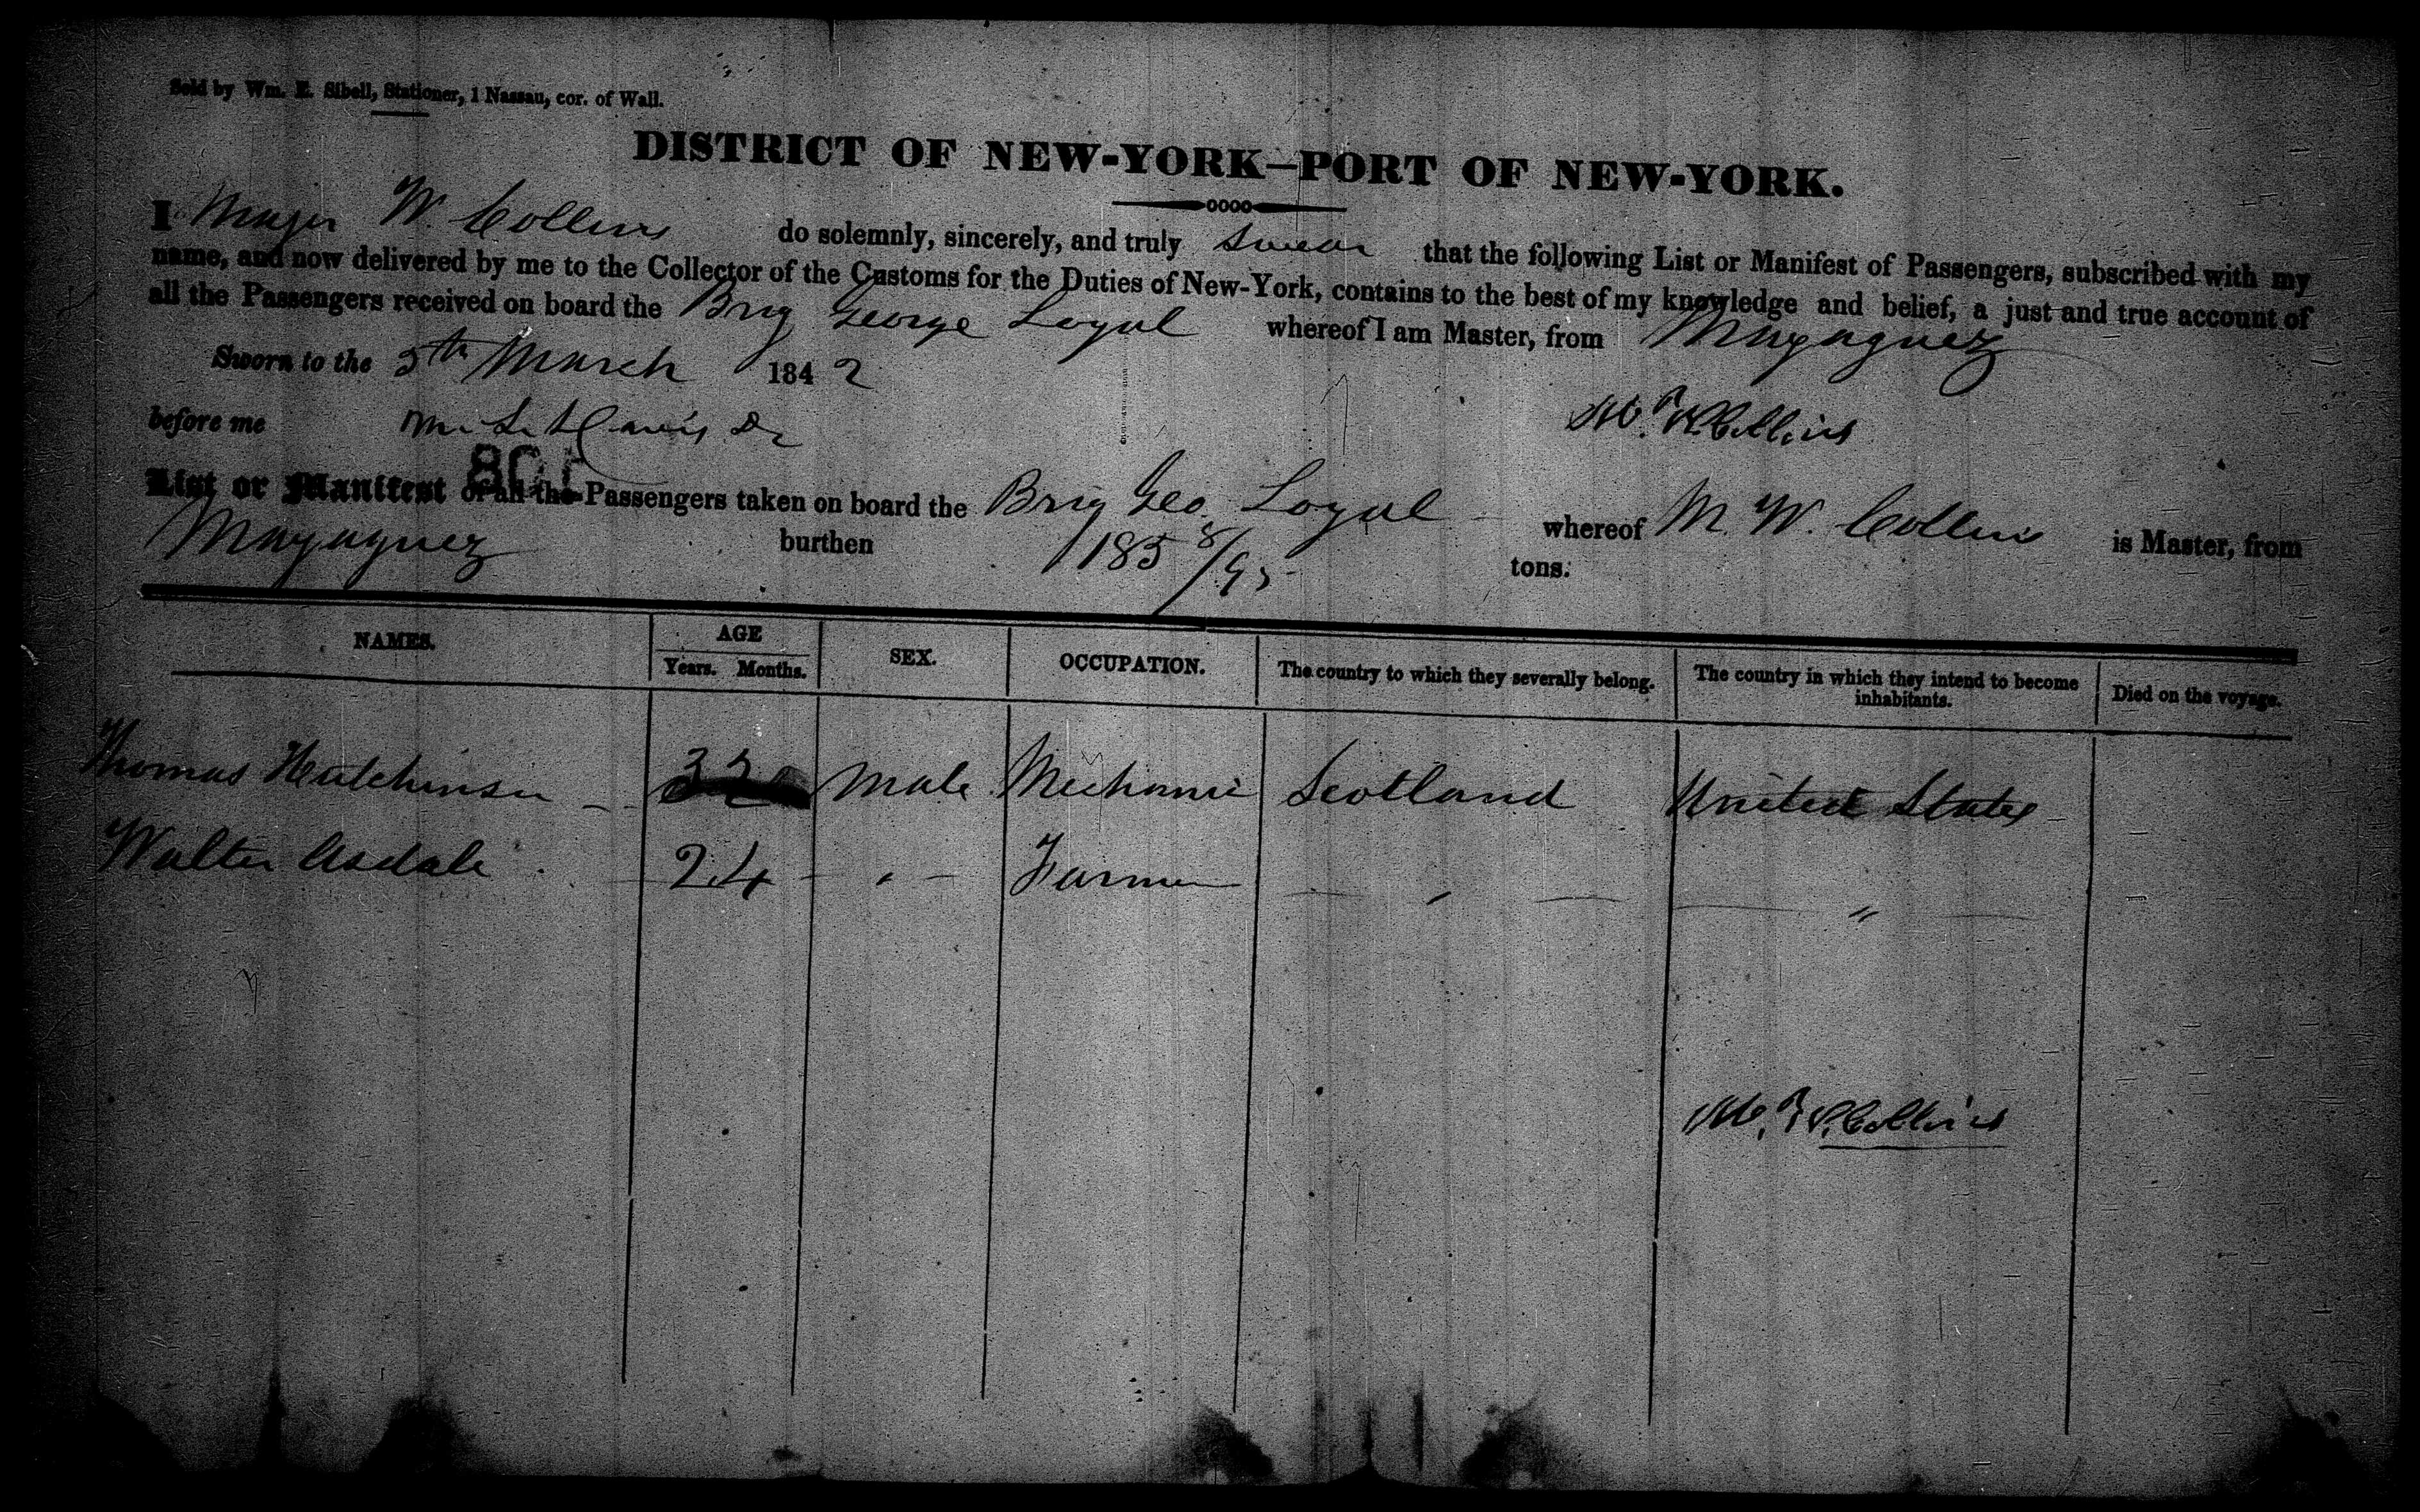 Sold by Wm. E. Sibell, Stationer, 1 Nassau, cor. of Wall.
DISTRICT OF NEW-YORK—PORT OF NEW-YORK.
I W. Collins do solemnly, sincerely, and truly swear that the following List or Manifest of Passengers, subscribed with my
name, and now delivered by me to the Collector of the Customs for the Duties of New-York, contains to the best of my knowledge and belief, a just and true account of
all the Passengers received on board the Brig George Loyal whereof I am Master, from Mayaguez
Sworn to the 5th March 1842
M. W. Collins
before me
List or Manifest of all the Passengers taken on board the Brig Geo. Loyal whereof M. W. Collins is Master, from
Mayaguez burthen 185 8/95 tons.
NAMES. AGE Years. Months. SEX. OCCUPATION. The country to which they severally belong. The country in which they intend to become inhabitants. Died on the voyage.
Thomas Hutchinson 32 Male Mechanic Scotland United States
Walter Asdale 24 " Farmer " "
M. W. Collins